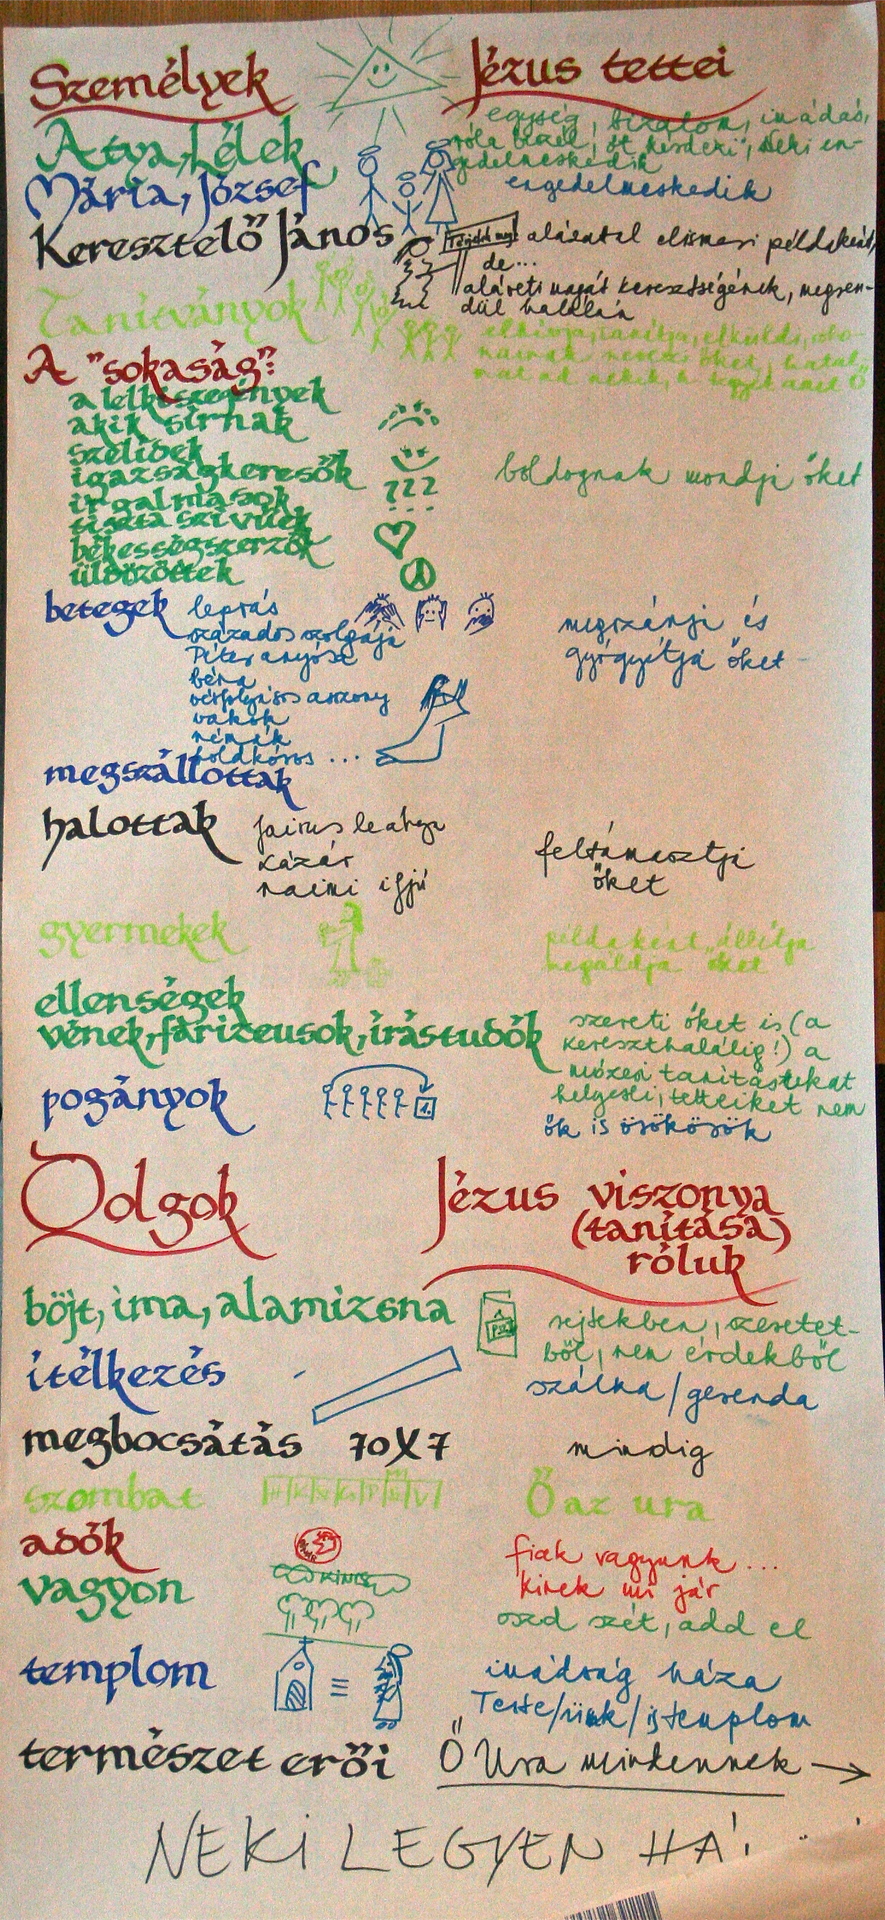 Személyek
Jézus tettei
Atya, Lélek
egység, bizalom, imádás,
róla beszél, őt kérdezi, Neki en-
gedelmeskedik
Mária, József
engedelmeskedik
Keresztelő János
alázattal elismeri példaként,
de...
aláveti magát keresztségének, megren-
dül halálán
Tanítványok
elhívja, tanítja, elküldi,
nainak nevezi őket, hatal-
mat ad nekik,
A "sokaság":
a lelkiszegények
akik sírnak
szelídek
igazságkeresők
irgalmasok
tiszta szívűek
békességszerzők
üldözöttek
???
boldognak mondja őket
betegek
leprás
százados szolgája
Péter anyósa
béna
vérfolyásos asszony
vakok
némák
holdkóros ...
megszánja és
gyógyítja őket
megszállottak
halottak
Jairus leánya
Lázár
naimi ifjú
feltámasztja
őket
gyermekek
példaként állítja
megáldja őket
ellenségek
vének, farizeusok, írástudók
szereti őket is (a
kereszthalálig!) a
mózesi tanításukat
helyesli, tetteiket nem
pogányok
1.
ők is örökösök
Dolgok
Jézus viszonya
(tanítása)
róluk
böjt, ima, alamizsna
rejtekben, szeretet-
ből, nem érdekből
ítélkezés
szálka / gerenda
megbocsátás 70X7
mindig
szombat
H K Sz Cs P Sz V
Ő az ura
adók
fiak vagyunk ...
kinek mi jár
vagyon
KINCS
oszd szét, add el
templom
=
imádság háza
Teste/ünk/is templom
természet erői
Ő Ura mindennek →
NEKI LEGYEN HÁ!